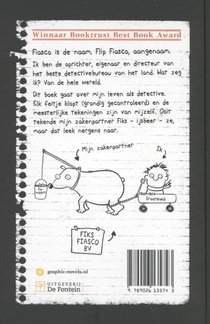 Winnaar Booktrust Best Book Award
Fiasco is de naam. Flip Fiasco, aangenaam.
Ik ben de oprichter, eigenaar en directeur van
het beste detectivebureau van het land. Wat zeg
ik? Van de hele wereld.
Dit boek gaat over mijn leven als detective.
Elk feitje klopt (grondig gecontroleerd) en de
meesterlijke tekeningen zijn van mijzelf. Ook
tekende mijn zakenpartner Fiks - ijsbeer - ze,
maar dat leek nergens naar.
Mijn zakenpartner
Ik
Grootheid
FIKS
FIASCO
BV
graphic-novels.nl
UITGEVERIJ
De Fontein
9 789026 135743